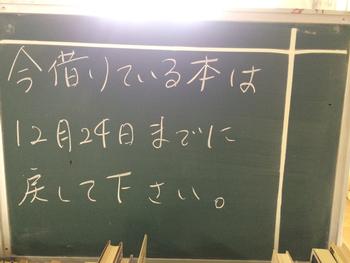 今借りている本は
12月24日までに
戻して下さい。